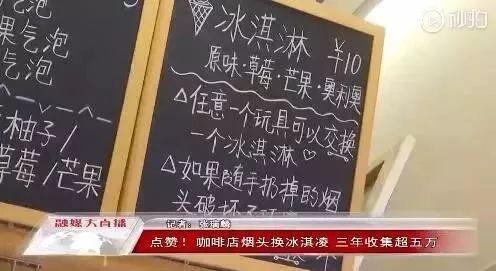 秒拍
气泡
果气泡
柚子/
草莓/芒果
冰淇淋 ¥10
原味·草莓·芒果·奥利奥
△任意一个玩具可以交换
一个冰淇淋♡
△如果随手扔掉的烟
头破坏
融媒大直播
记者：张瑞麟
点赞！咖啡店烟头换冰淇凌 三年收集超五万